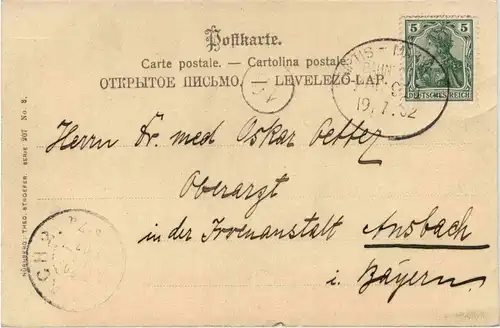 Postkarte.
Carte postale. — Cartolina postale.
ОТКРЫТОЕ ПИСЬМО. — LEVELEZŐ-LAP.
5 5
DEUTSCHES REICH
19.7.02
Herrn Dr. med Oskar Oetter
Oberarzt
in der Irrenanstalt Ansbach
i. Bayern
NÜRNBERG: THEO. STROEFER SERIE 207 No. 8.